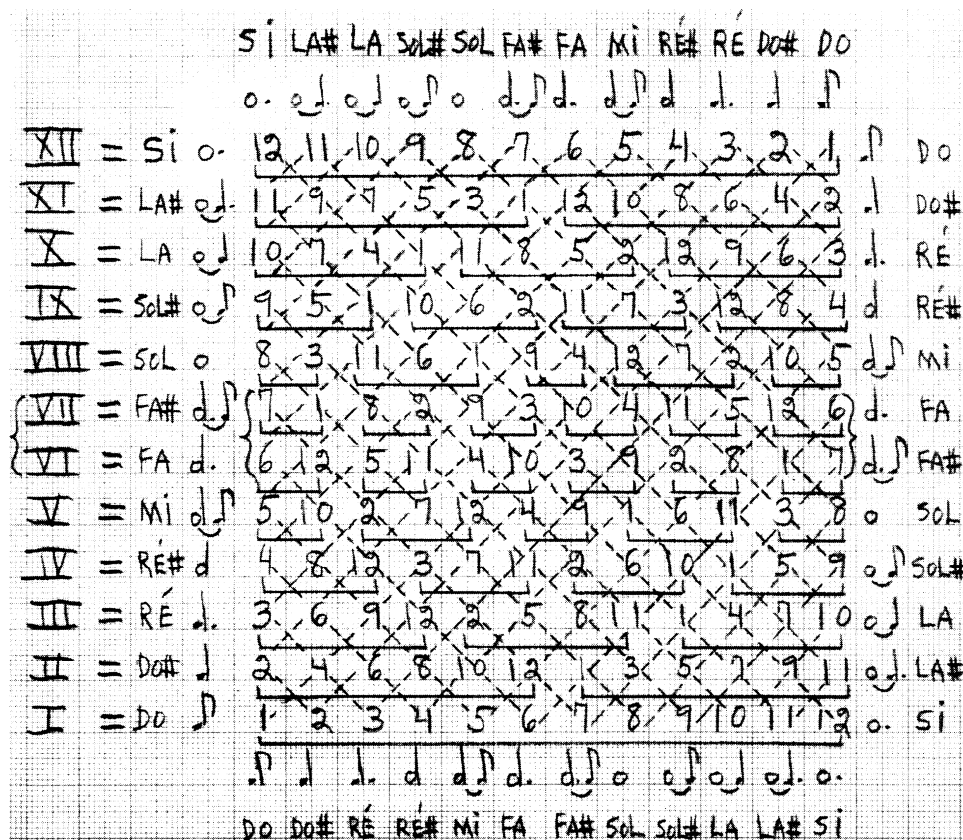 Si LA# LA SOL# SOL FA# FA Mi RÉ# RÉ DO# DO
XII = Si 12 11 10 9 8 7 6 5 4 3 2 1 DO
XI = LA# 11 9 7 5 3 1 12 10 8 6 4 2 DO#
X = LA 10 7 4 1 11 8 5 2 12 9 6 3 RÉ
IX = SOL# 9 5 1 10 6 2 11 7 3 12 8 4 RÉ#
VIII = SOL 8 3 11 6 1 9 4 12 7 2 10 5 Mi
VII = FA# 7 1 8 2 9 3 10 4 11 5 12 6 FA
VI = FA 6 12 5 11 4 10 3 9 2 8 1 7 FA#
V = Mi 5 10 2 7 12 4 9 1 6 11 3 8 SOL
IV = RÉ# 4 8 12 3 7 11 2 6 10 1 5 9 SOL#
III = RÉ 3 6 9 12 2 5 8 11 1 4 7 10 LA
II = DO# 2 4 6 8 10 12 1 3 5 7 9 11 LA#
I = DO 1 2 3 4 5 6 7 8 9 10 11 12 Si
DO DO# RÉ RÉ# Mi FA FA# SOL SOL# LA LA# Si